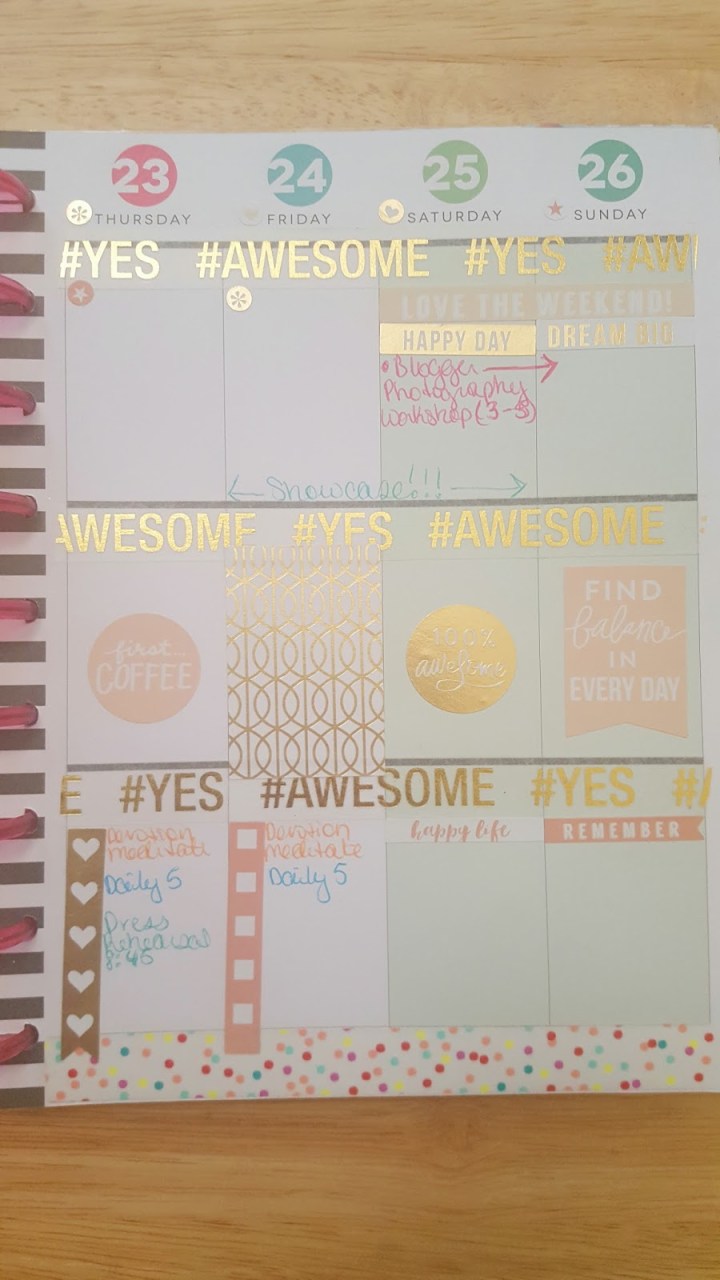 23 24 25 26
THURSDAY FRIDAY SATURDAY SUNDAY
#YES #AWESOME #YES #AW
LOVE THE WEEKEND!
HAPPY DAY DREAM BIG
• Blogger
Photography
Workshop (3-5)
Showcase!!!
AWESOME #YES #AWESOME
first...
COFFEE
100%
awesome
FIND
balance
IN
EVERY DAY
E #YES #AWESOME #YES #A
Devotion
meditate
Daily 5
Dress
Rehearsal
8:45
Devotion
meditate
Daily 5
happy life
REMEMBER